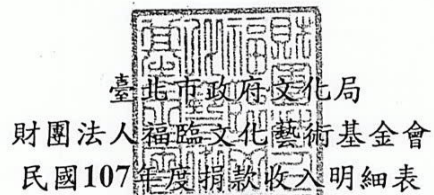 臺北市政府文化局
財團法人福臨文化藝術基金會
民國107年度捐款收入明細表